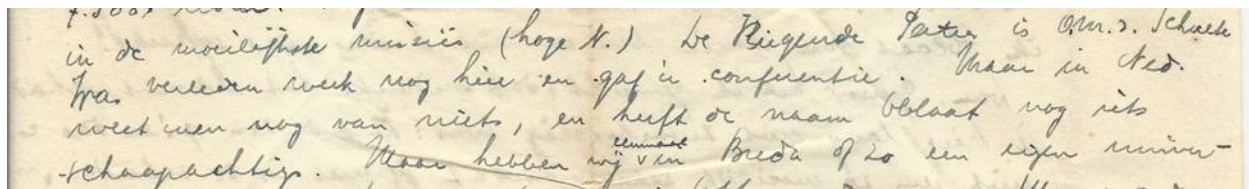 in de moeilijkste missiës (hoge N.) De Vliegende Pater is O.M.I. Schulte
Was verleden week nog hier en gaf 'n conferentie. Maar in Ned.
weet men nog van niets, en heeft de naam Oblaat nog iets
schaapachtigs. Maar hebben wij eenmaal in Breda of zo een eigen univer-